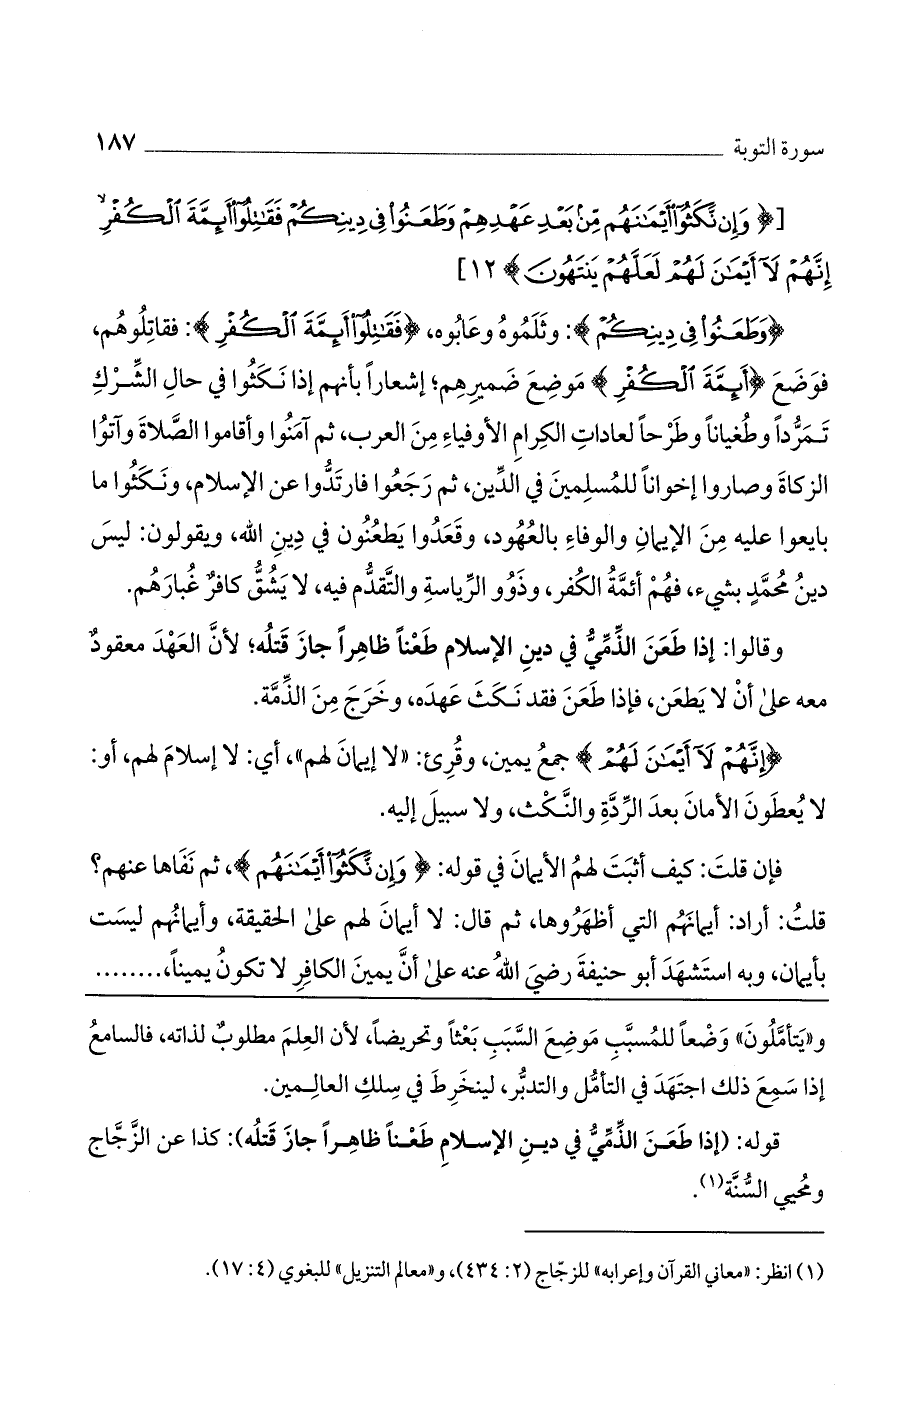 سورة التوبة ١٨٧
[﴿ وَإِن نَّكَثُوٓا۟ أَيْمَٰنَهُم مِّنۢ بَعْدِ عَهْدِهِمْ وَطَعَنُوا۟ فِى دِينِكُمْ فَقَٰتِلُوٓا۟ أَئِمَّةَ ٱلْكُفْرِ ۙ
إِنَّهُمْ لَآ أَيْمَٰنَ لَهُمْ لَعَلَّهُمْ يَنتَهُونَ ﴾ ١٢]
﴿وَطَعَنُوا۟ فِى دِينِكُمْ ﴾: وثَلَمُوهُ وعَابُوه، ﴿فَقَٰتِلُوٓا۟ أَئِمَّةَ ٱلْكُفْرِ ﴾: فقاتِلُوهُم،
فوَضَعَ ﴿أَئِمَّةَ ٱلْكُفْرِ ﴾ مَوضِعَ ضَميرِهِم؛ إشعاراً بأنهم إذا نَكَثُوا في حالِ الشِّرْكِ
تَمَرُّداً وطُغياناً وطَرْحاً لعاداتِ الكِرامِ الأوفياءِ مِنَ العرب، ثم آمَنُوا وأقاموا الصَّلاةَ وآتوُا
الزكاةَ وصاروا إخواناً للمُسلِمينَ في الدِّين، ثم رَجَعُوا فارتَدُّوا عن الإسلام، ونَكَثُوا ما
بايعوا عليه مِنَ الإيمانِ والوفاءِ بالعُهُود، وقَعَدُوا يَطعُنُون في دِينِ الله، ويقولون: ليسَ
دينُ مُحمَّدٍ بشيء، فهُمْ أئمَّةُ الكُفر، وذَوُو الرِّياسةِ والتَّقدُّم فيه، لا يَشُقُّ كافرٌ غُبارَهُم.
وقالوا: إذا طَعَنَ الذِّمِّيُّ في دينِ الإسلامِ طَعْناً ظاهِراً جازَ قَتلُه؛ لأنَّ العَهْدَ معقودٌ
معه على أنْ لا يَطعَن، فإذا طَعَنَ فقد نَكَثَ عَهدَه، وخَرَجَ مِنَ الذِّمَّة.
﴿إِنَّهُمْ لَآ أَيْمَٰنَ لَهُمْ ﴾ جمعُ يمين، وقُرِئ: «لا إيمانَ لهم»، أي: لا إسلامَ لهم، أو:
لا يُعطَونَ الأمانَ بعدَ الرِّدَّةِ والنَّكْث، ولا سبيلَ إليه.
فإن قلتَ: كيف أثبَتَ لهمُ الأيمانَ في قوله: ﴿ وَإِن نَّكَثُوٓا۟ أَيْمَٰنَهُم ﴾، ثم نَفَاها عنهم؟
قلتُ: أراد: أيمانَهُم التي أظهَرُوها، ثم قال: لا أيمانَ لهم على الحقيقة، وأيمانُهم ليسَت
بأيمان، وبه استَشهَدَ أبو حنيفةَ رضيَ اللهُ عنه على أنَّ يمينَ الكافِرِ لا تكونُ يميناً،........
و«يَتأمَّلُونَ» وَضْعاً للمُسبَّبِ مَوضِعَ السَّبَبِ بَعْثاً وتحريضاً، لأن العِلمَ مطلوبٌ لذاته، فالسامعُ
إذا سَمِعَ ذلك اجتَهَدَ في التأمُّل والتدبُّر، لينخَرِطَ في سِلكِ العالِمين.
قوله: (إذا طَعَنَ الذِّمِّيُّ في دينِ الإسلامِ طَعْناً ظاهِراً جازَ قَتلُه): كذا عن الزَّجَّاج
ومُحيي السُّنَّة(١).
(١) انظر: «معاني القرآن وإعرابه» للزجّاج (٢: ٤٣٤)، و«معالم التنزيل» للبغوي (٤: ١٧).